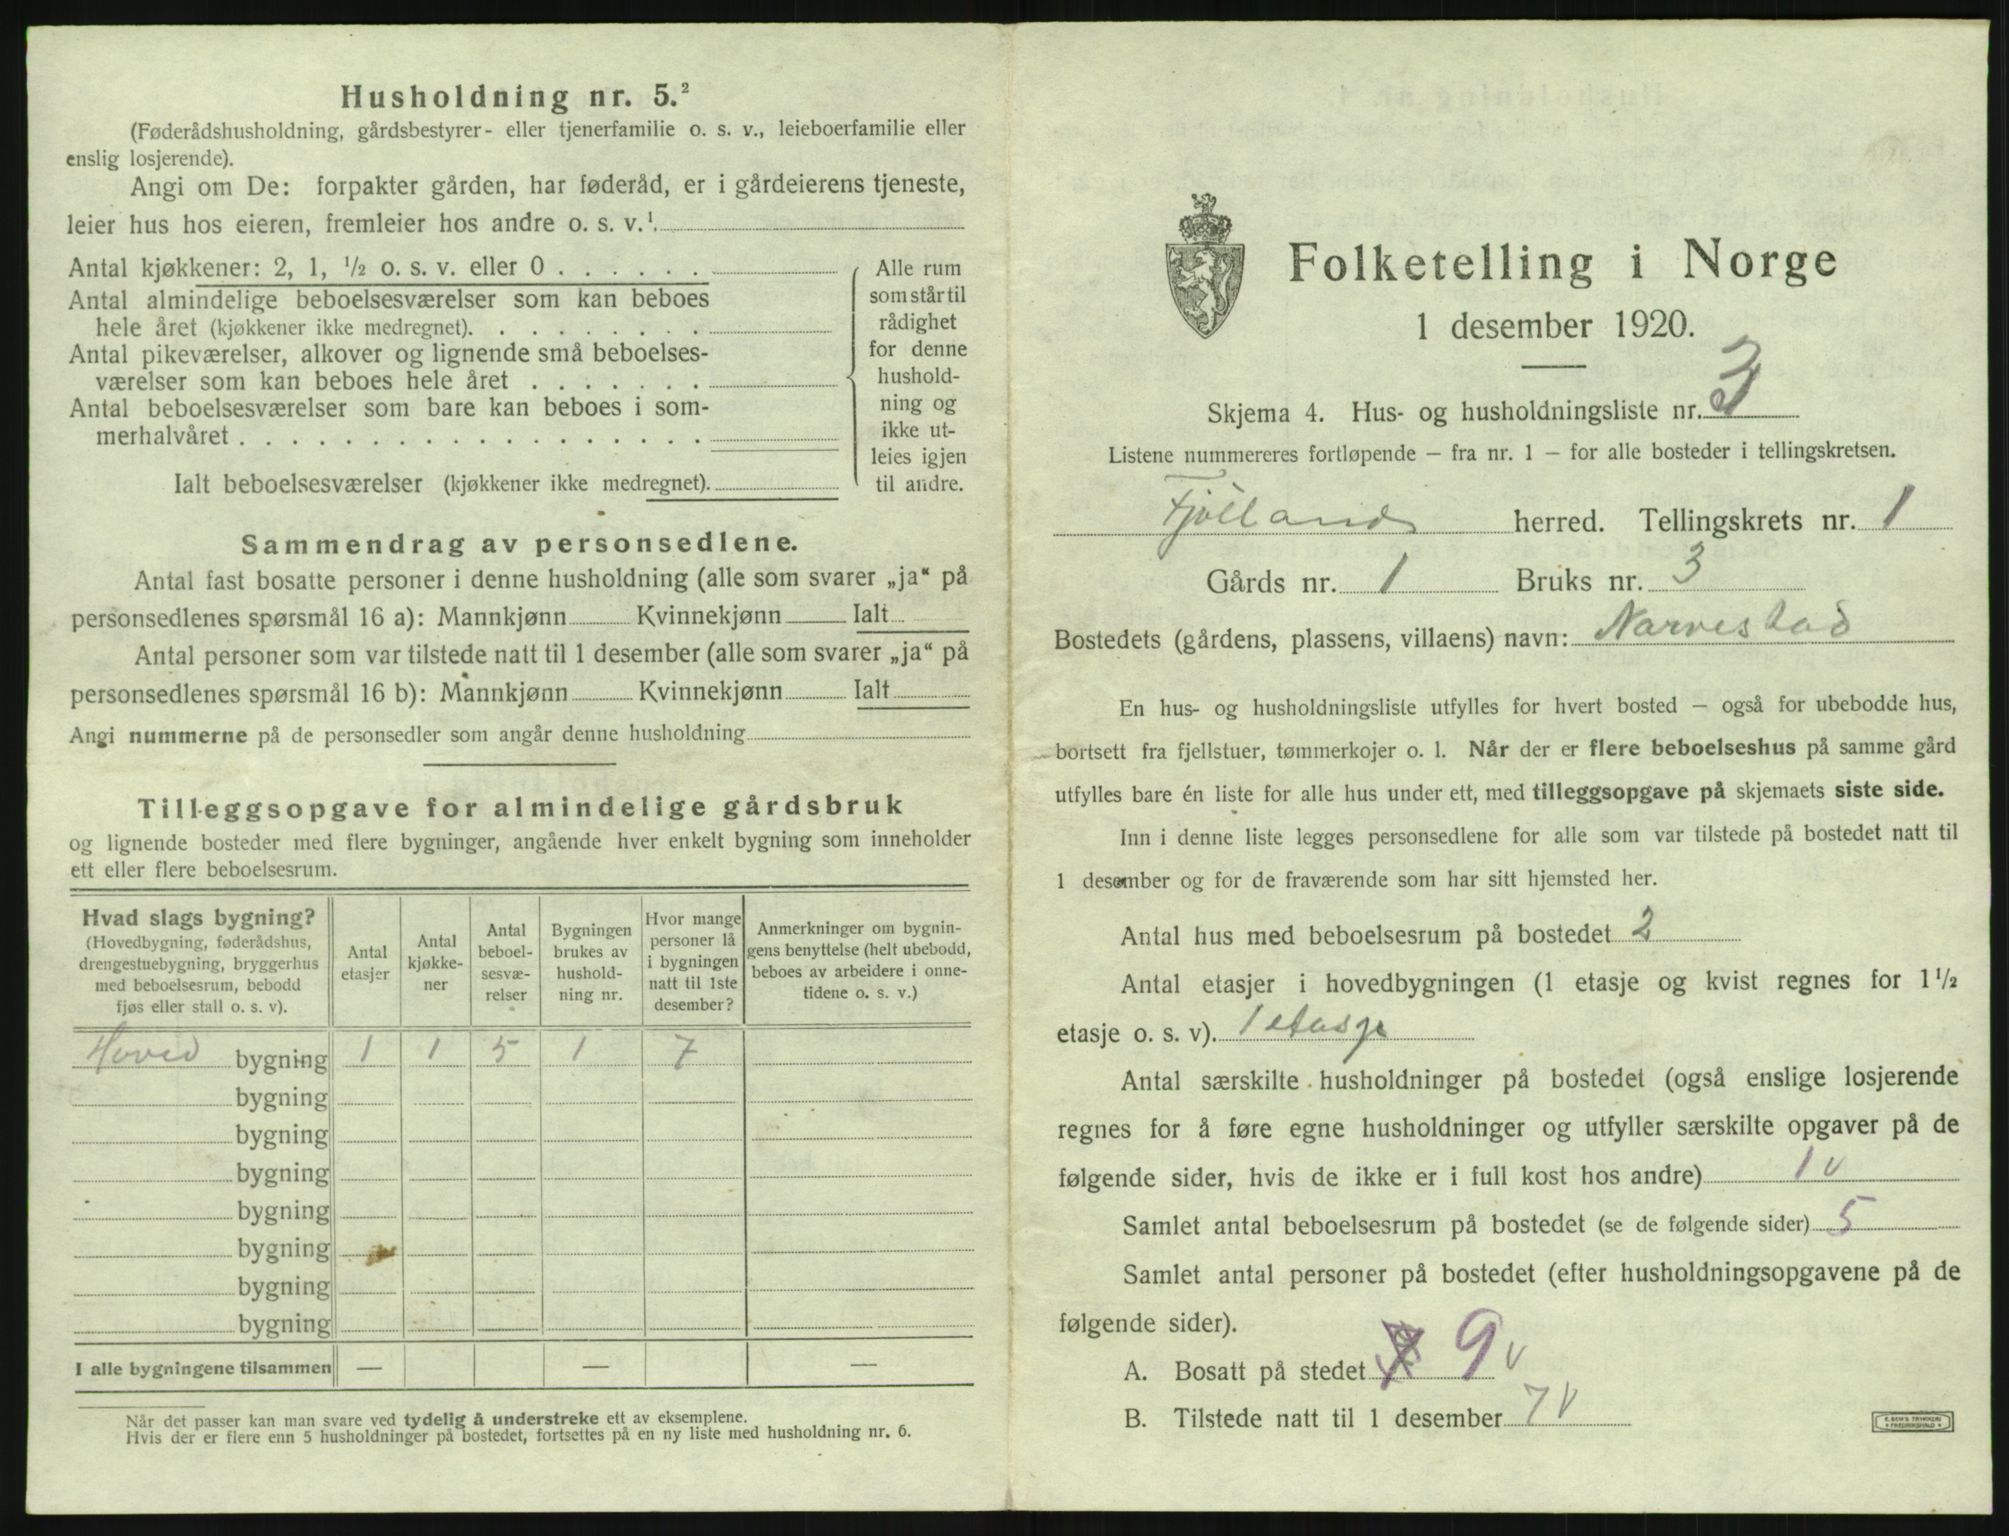 Husholdning nr. 5.²
(Føderådshusholdning, gårdsbestyrer- eller tjenerfamilie o. s. v., leieboerfamilie eller
enslig losjerende).
Angi om De: forpakter gården, har føderåd, er i gårdeierens tjeneste,
leier hus hos eieren, fremleier hos andre o. s. v.¹.
Antal kjøkkener: 2, 1, ½ o. s. v. eller 0 . . . . . .
Antal almindelige beboelsesværelser som kan beboes
hele året (kjøkkener ikke medregnet). . . . . . . . .
Antal pikeværelser, alkover og lignende små beboelses-
værelser som kan beboes hele året . . . . . . .
Antal beboelsesværelser som bare kan beboes i som-
merhalvåret . . . . . . . . . . . . . . . . . .
Ialt beboelsesværelser (kjøkkener ikke medregnet).
Alle rum
som står til
rådighet
for denne
hushold-
ning og
ikke ut-
leies igjen
til andre.
Sammendrag av personsedlene.
Antal fast bosatte personer i denne husholdning (alle som svarer „ja“ på
personsedlenes spørsmål 16 a): Mannkjønn Kvinnekjønn Ialt
Antal personer som var tilstede natt til 1 desember (alle som svarer „ja“ på
personsedlenes spørsmål 16 b): Mannkjønn Kvinnekjønn Ialt
Angi nummerne på de personsedler som angår denne husholdning
Tilleggsopgave for almindelige gårdsbruk
og lignende bosteder med flere bygninger, angående hver enkelt bygning som inneholder
ett eller flere beboelsesrum.
Hvad slags bygning?
(Hovedbygning, føderådshus,
drengestuebygning, bryggerhus
med beboelsesrum, bebodd
fjøs eller stall o. s. v).
Antal
etasjer
Antal
kjøkke-
ner
Antal
beboel-
sesvæ-
relser
Bygningen
brukes av
hushold-
ning nr.
Hvor mange
personer lå
i bygningen
natt til 1ste
desember?
Anmerkninger om bygnin-
gens benyttelse (helt ubebodd,
beboes av arbeidere i onne-
tidene o. s. v.)
Hoved bygning 1 1 5 1 7
bygning
bygning
bygning
bygning
bygning
bygning
bygning
I alle bygningene tilsammen — — —
Når det passer kan man svare ved tydelig å understreke ett av eksemplene.
Hvis der er flere enn 5 husholdninger på bostedet, fortsettes på en ny liste med husholdning nr. 6.
Folketelling i Norge
1 desember 1920.
Skjema 4. Hus- og husholdningsliste nr. 3
Listene nummereres fortløpende — fra nr. 1 — for alle bosteder i tellingskretsen.
Fjotland herred. Tellingskrets nr. 1
Gårds nr. 1 Bruks nr. 3
Bostedets (gårdens, plassens, villaens) navn: Narvestad
En hus- og husholdningsliste utfylles for hvert bosted — også for ubebodde hus,
bortsett fra fjellstuer, tømmerkojer o. l. Når der er flere beboelseshus på samme gård
utfylles bare én liste for alle hus under ett, med tilleggsopgave på skjemaets siste side.
Inn i denne liste legges personsedlene for alle som var tilstede på bostedet natt til
1 desember og for de fraværende som har sitt hjemsted her.
Antal hus med beboelsesrum på bostedet 2
Antal etasjer i hovedbygningen (1 etasje og kvist regnes for 1½
etasje o. s. v). 1 etasje
Antal særskilte husholdninger på bostedet (også enslige losjerende
regnes for å føre egne husholdninger og utfyller særskilte opgaver på de
følgende sider, hvis de ikke er i full kost hos andre) 1 v
Samlet antal beboelsesrum på bostedet (se de følgende sider) 5
Samlet antal personer på bostedet (efter husholdningsopgavene på de
følgende sider).
A. Bosatt på stedet 9 v
B. Tilstede natt til 1 desember 7 v
E. SEM'S TRYKKERI
FREDRIKSHALD